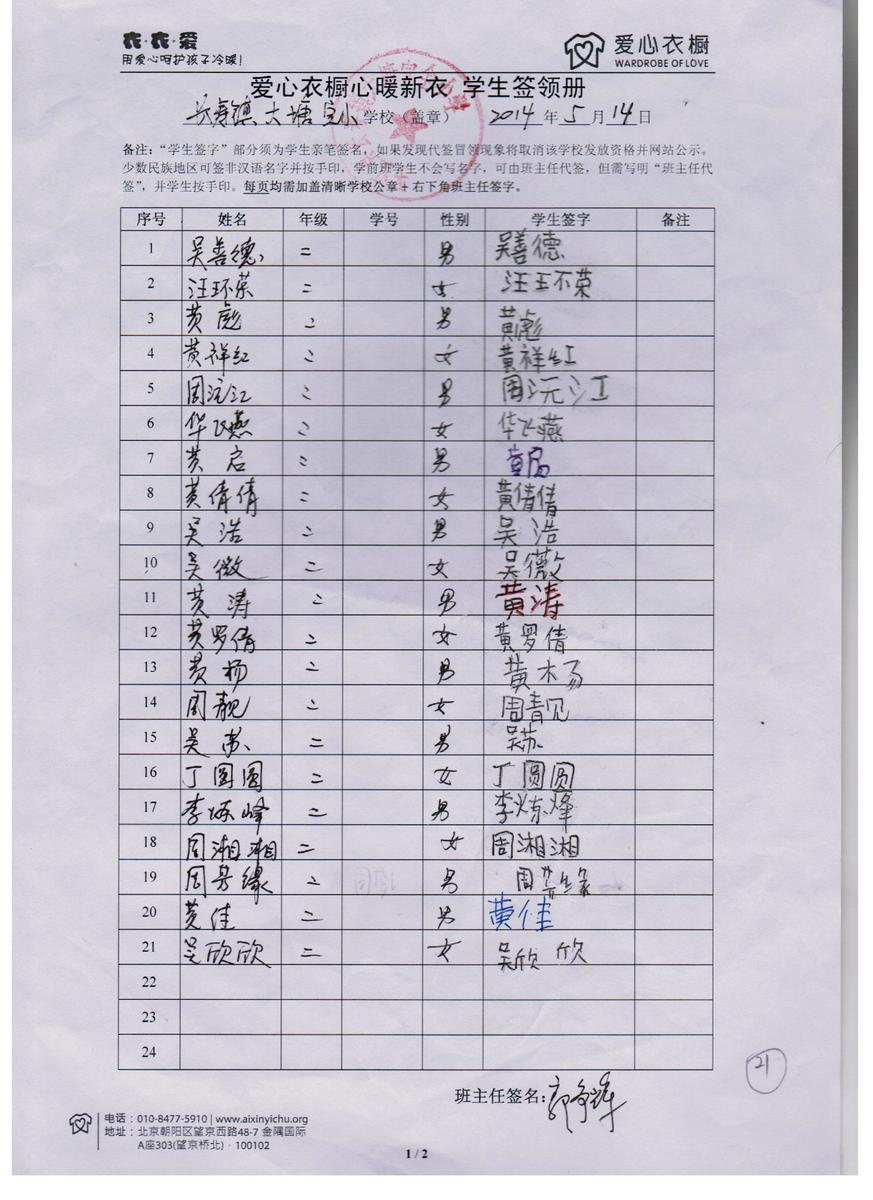 衣·衣·爱
用爱心呵护孩子冷暖!
爱心衣橱
WARDROBE OF LOVE
爱心衣橱心暖新衣 学生签领册
长寿镇大塘完小学校（盖章） 2014年5月14日
备注："学生签字"部分须为学生亲笔签名，如果发现代签冒领现象将取消该学校发放资格并网站公示。
少数民族地区可签非汉语名字并按手印，学前班学生不会写名字，可由班主任代签，但需写明"班主任代
签"，并学生按手印。每页均需加盖清晰学校公章+右下角班主任签字。
序号 姓名 年级 学号 性别 学生签字 备注
1 吴善德 二 男 吴善德
2 汪环荣 二 女 汪王不荣
3 黄彪 二 男 黄彪
4 黄祥红 二 女 黄祥红
5 周沅江 二 男 周沅江
6 华飞燕 二 女 华飞燕
7 黄启 二 男 黄启
8 黄倩倩 二 女 黄倩倩
9 吴浩 二 男 吴浩
10 吴微 二 女 吴薇
11 黄涛 二 男 黄涛
12 黄罗倩 二 女 黄罗倩
13 黄杨 二 男 黄杨
14 周靓 二 女 周靓
15 吴苏 二 男 吴苏
16 丁圆圆 二 女 丁圆圆
17 李炼峰 二 男 李炼烽
18 周湘湘 二 女 周湘湘
19 周芳缘 二 男 周芳缘
20 黄佳 二 男 黄佳
21 吴欣欣 二 女 吴欣欣
22
23
24
21
班主任签名：
电话：010-8477-5910 | www.aixinyichu.org
地址：北京朝阳区望京西路48-7 金隅国际
A座303(望京桥北)·100102
1 / 2